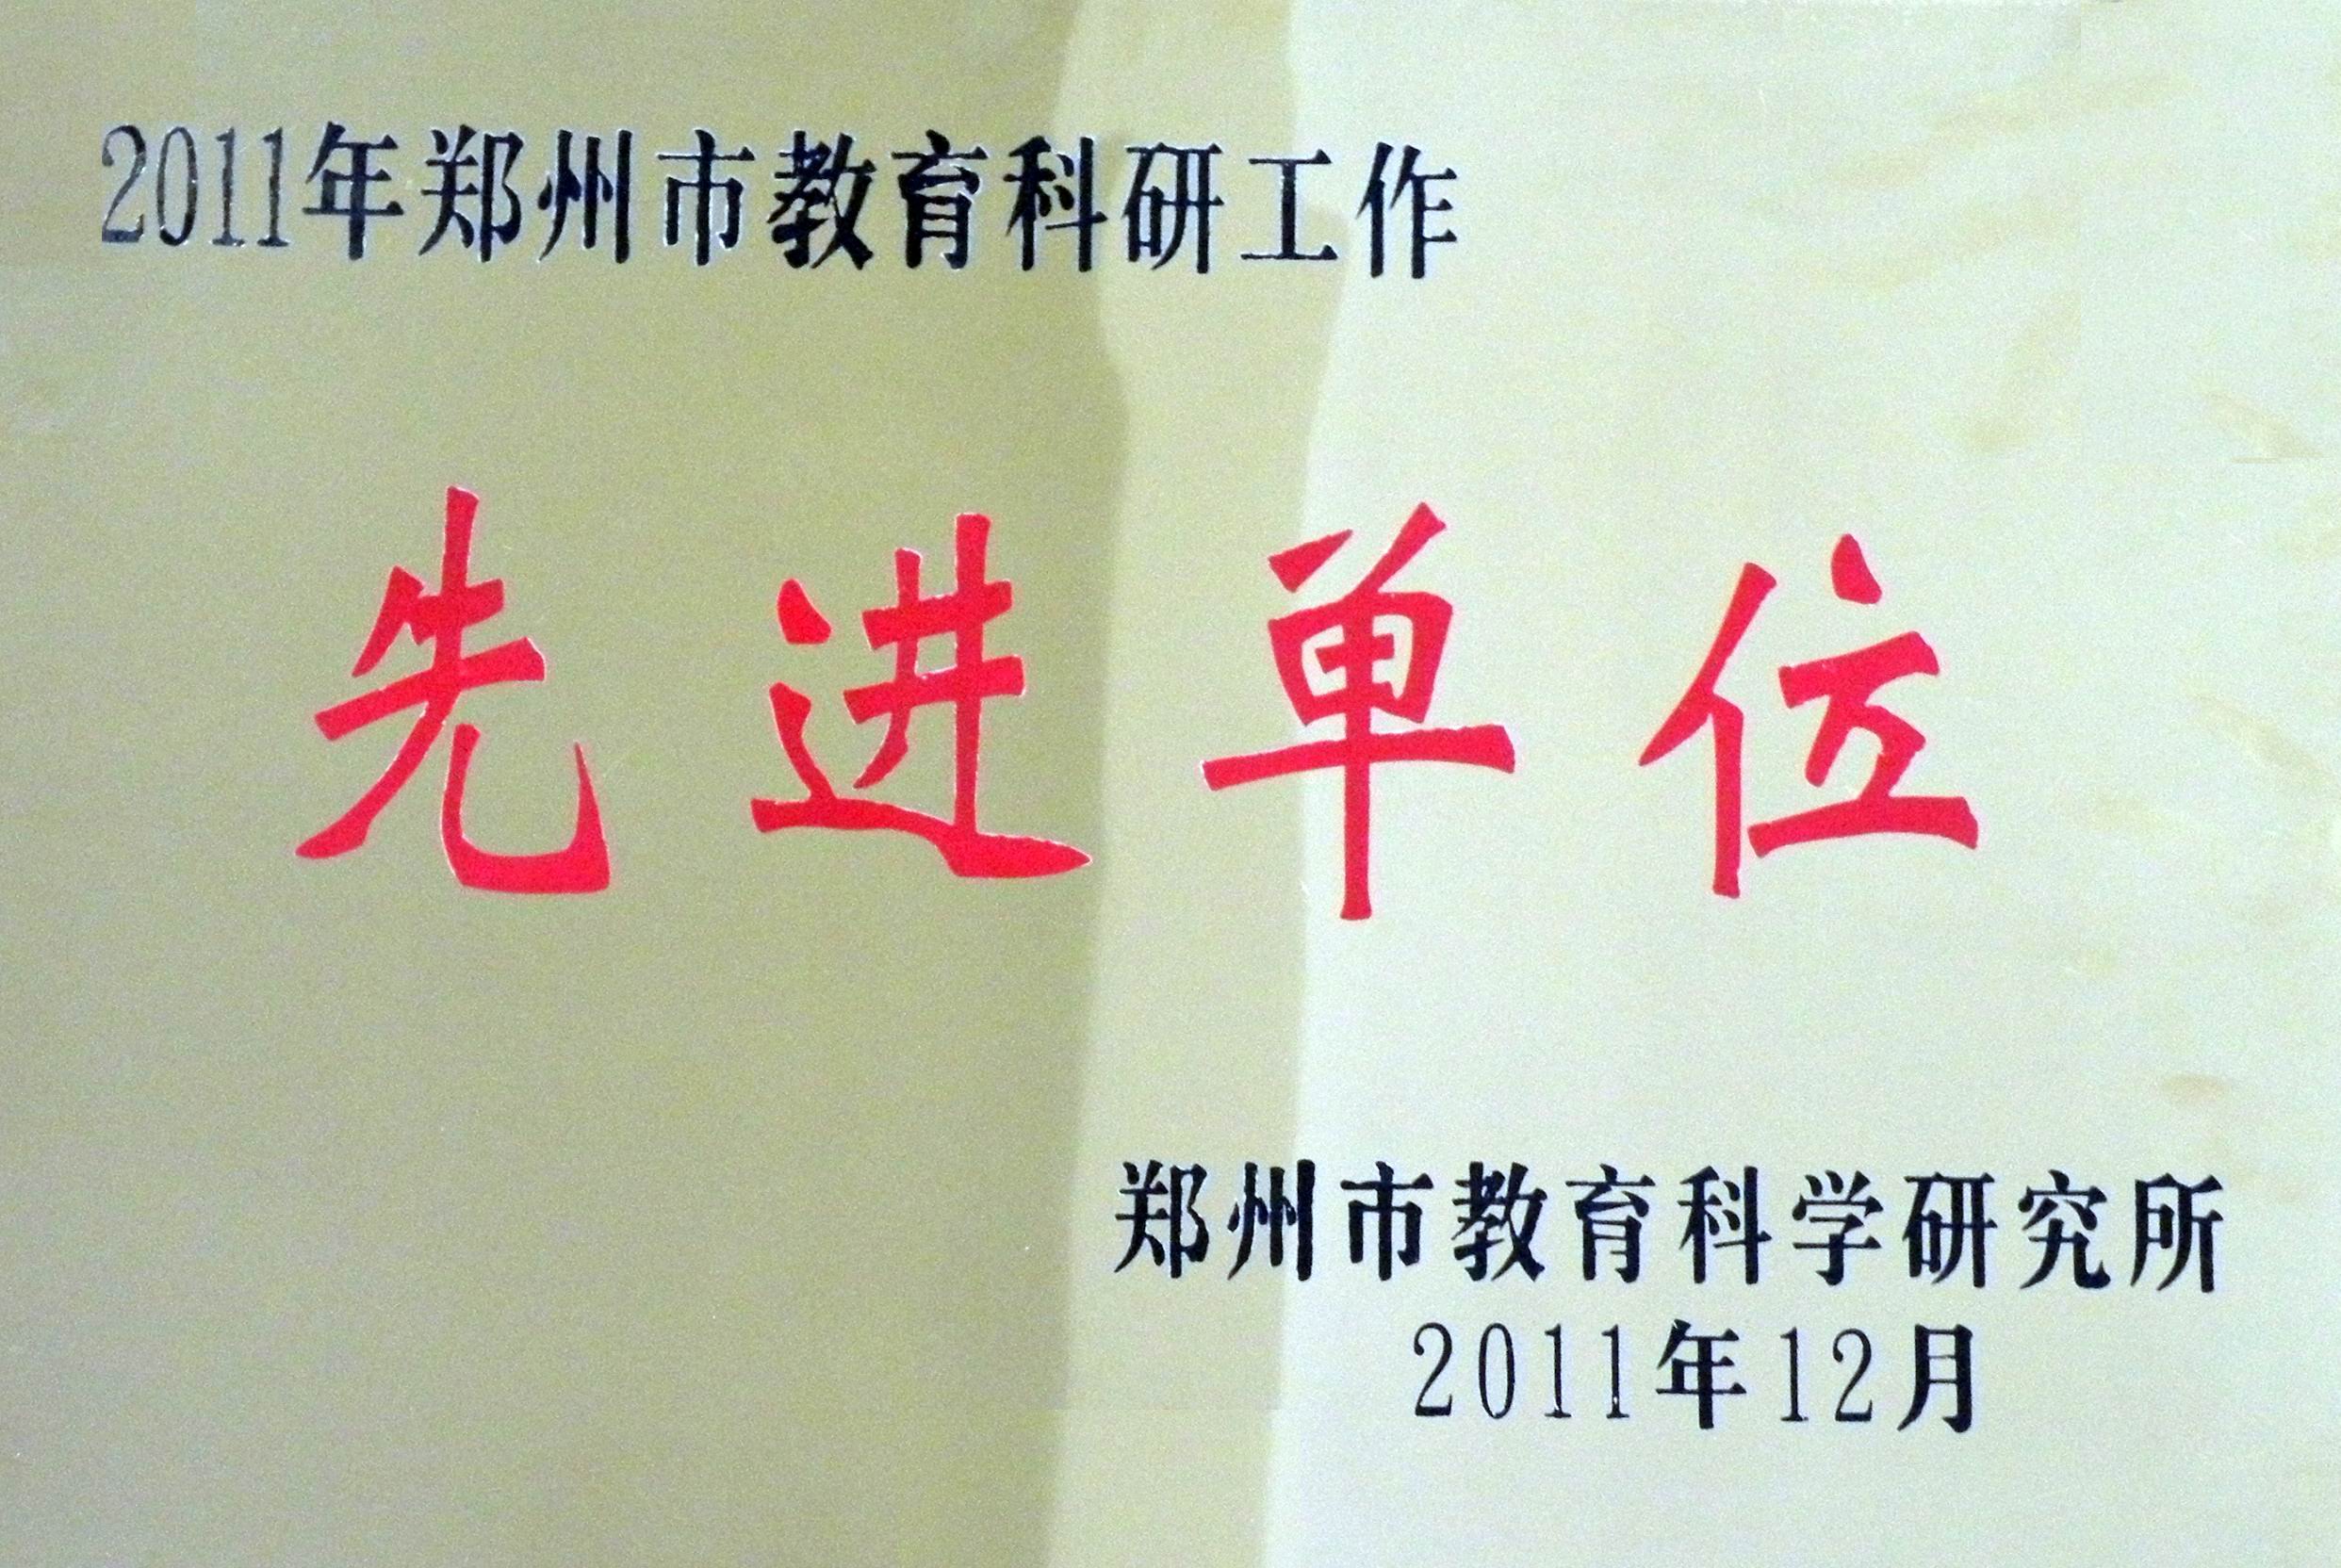 2011年郑州市教育科研工作
先进单位
郑州市教育科学研究所
2011年12月